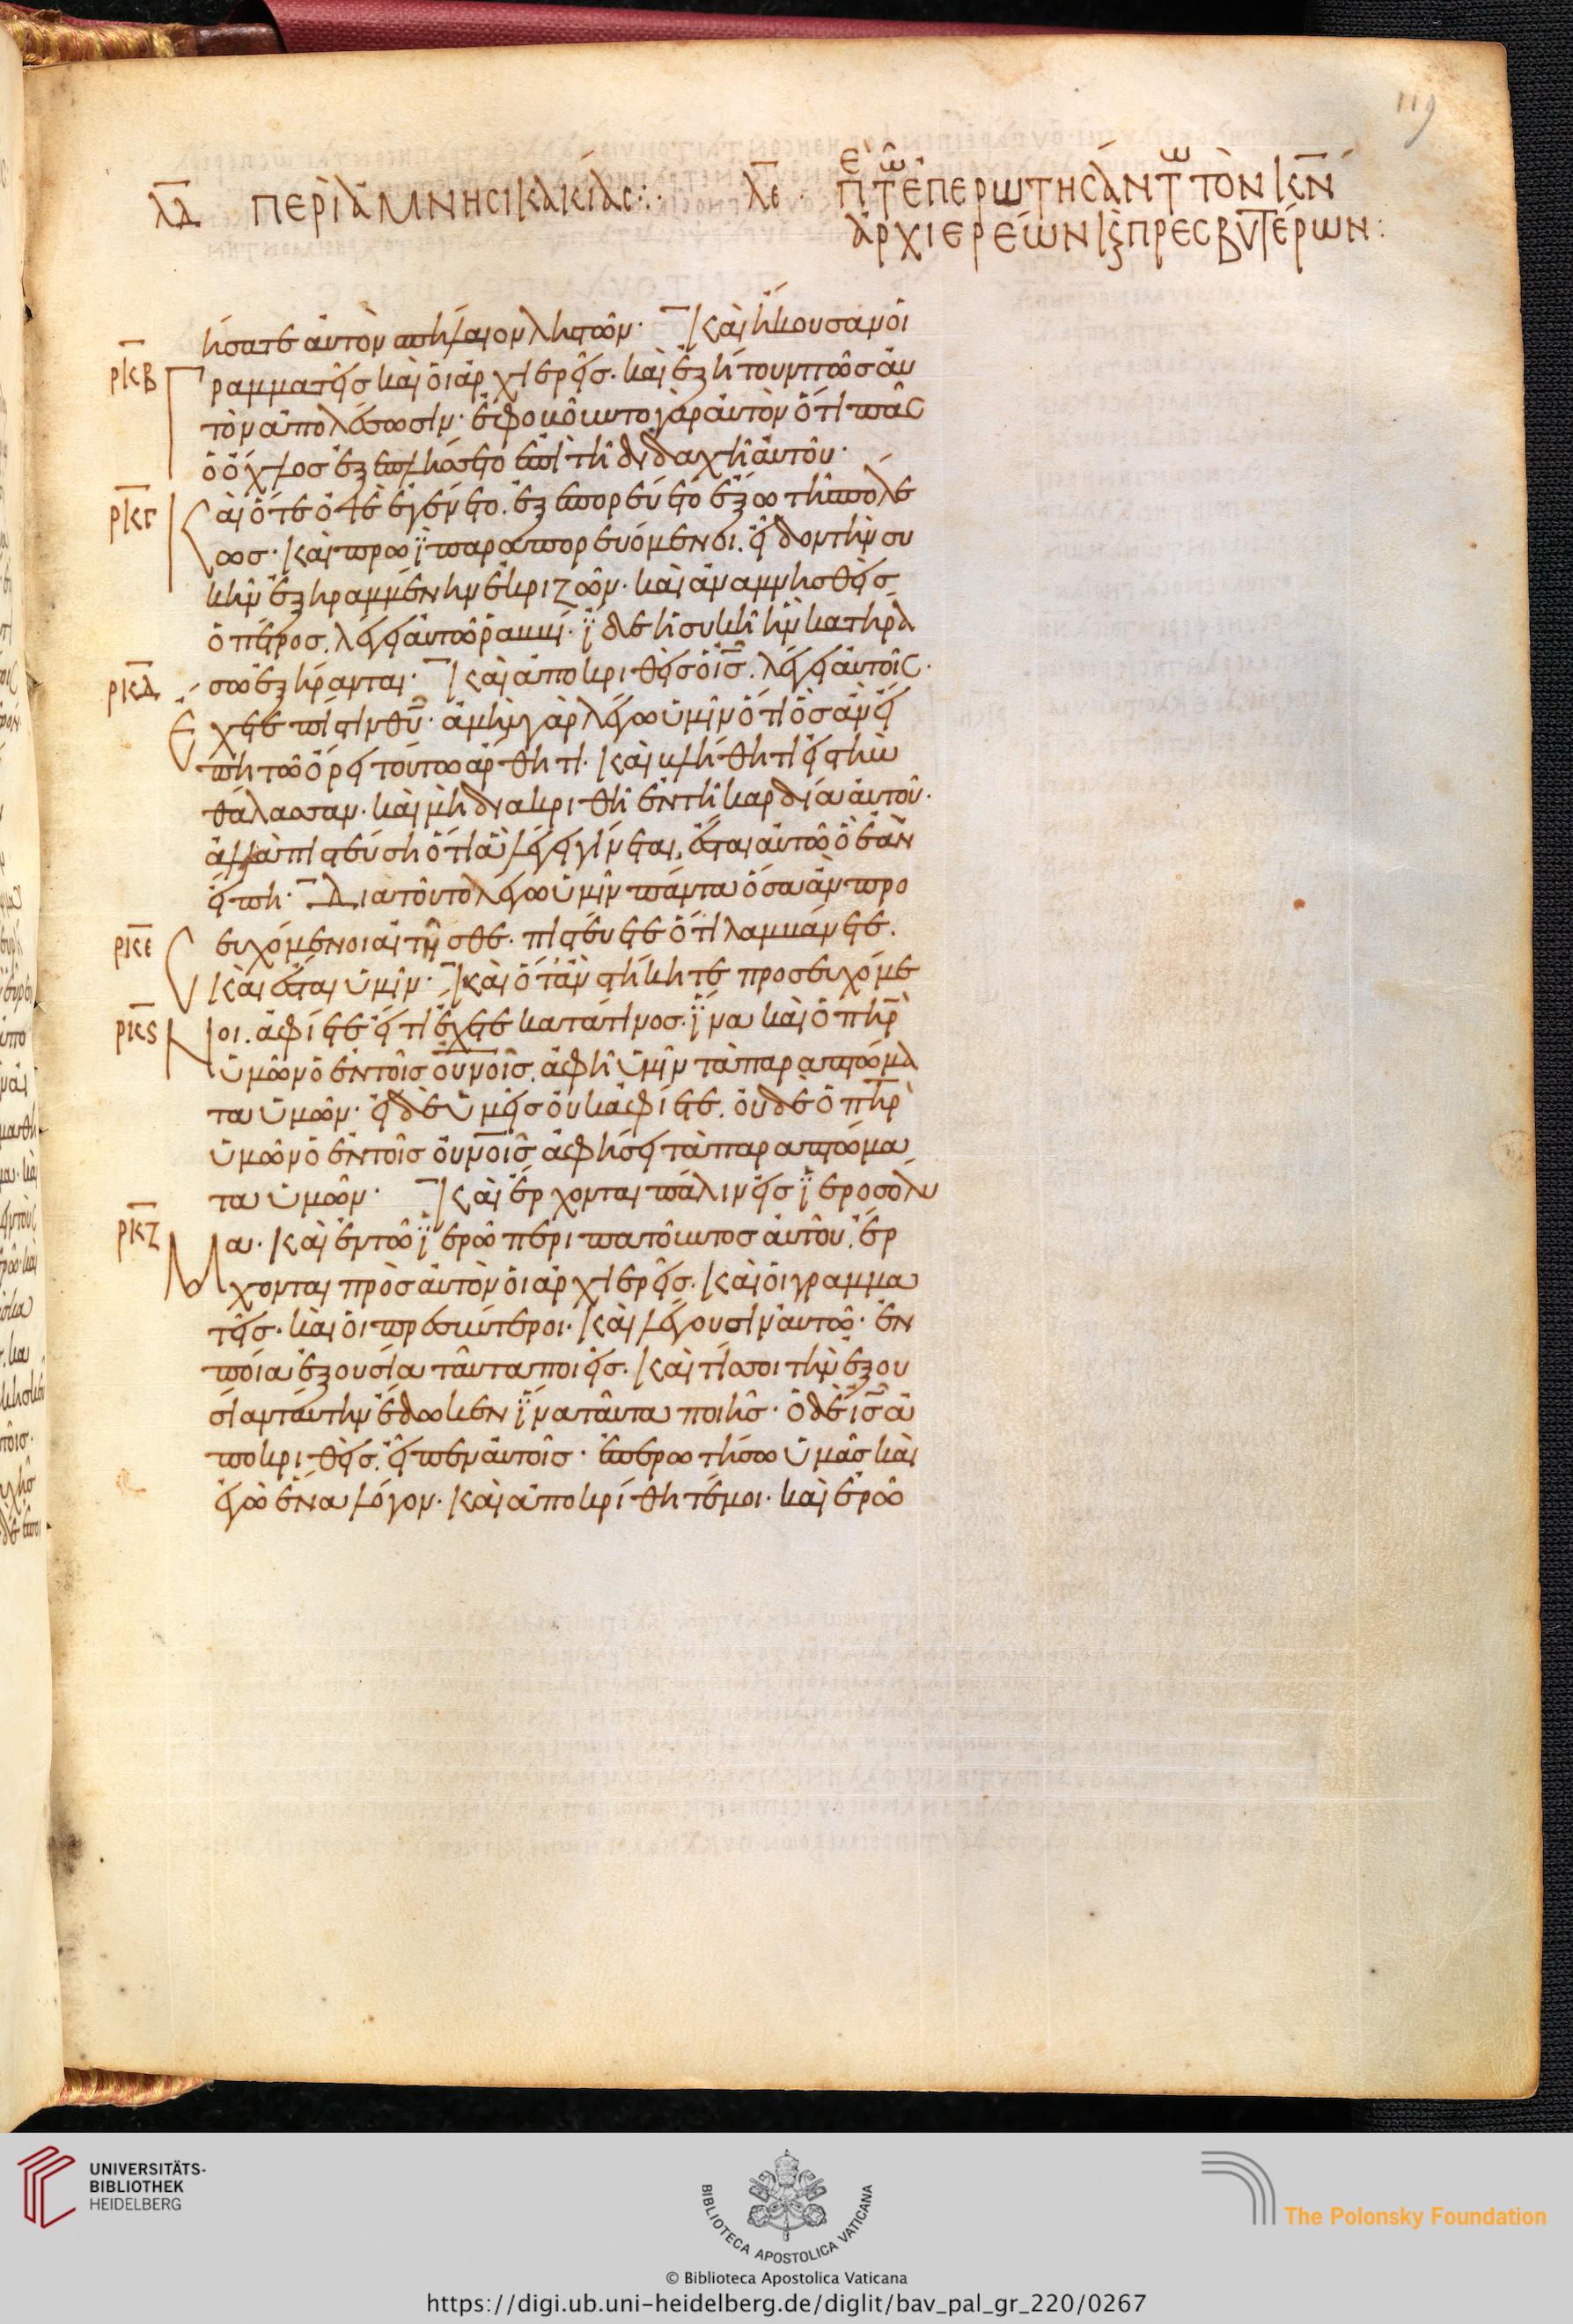 119
λδ περὶ ἀμνησικακίας
λε π τ ἐπερωτησάντ τὸν κν
ἀρχιερέων κ πρεσβυτέρων
ήσατε αὐτὸν σπήλαιον ληστῶν· καὶ ἤκουσαν οἱ
ρκβ
Γραμματεῖς καὶ οἱ ἀρχιερεῖς· καὶ ἐζήτουν πῶς αὐ
τὸν ἀπολέσωσιν· ἐφοβοῦντο γὰρ αὐτὸν ὅτι πᾶς
ὁ ὄχλος ἐξεπλήσσετο ἐπὶ τῆ διδαχῆ αὐτοῦ·
ρκγ
Καὶ ὅτε ὀψὲ ἐγένετο. ἐξεπορεύετο ἔξω τῆς πόλε
ως· καὶ πρωῒ παραπορευόμενοι. εἶδον τὴν συ
κῆν ἐξηραμμένην ἐκ ριζῶν· καὶ ἀναμνησθεὶς
ὁ πέτρος. λέγει αὐτῶ ῥαββί· ἴδε ἡ συκῆ ἣν κατηρά
ρκδ
σω ἐξήρανται· καὶ ἀποκριθεὶς ὁ ις. λέγει αὐτοῖς·
Ἔχετε πίστιν θυ· ἀμὴν γὰρ λέγω ὑμῖν ὅτι ὃς ἂν εἴ
πη τῶ ὄρει τούτω ἄρθητι· καὶ βλήθητι εἰς τὴν
θάλασσαν· καὶ μὴ διακριθῆ ἐν τῆ καρδία αὐτοῦ·
ἀλλὰ πιστεύση ὅτι ἃ λέγει γίνεται, ἔσται αὐτῶ ὃ ἐὰν
εἴπη· Διατοῦτο λέγω ὑμῖν πάντα ὅσα ἂν προ
ρκε
σευχόμενοι αἰτῆσθε· πιστεύετε ὅτι λαμβάνετε.
καὶ ἔσται ὑμῖν· καὶ ὅταν στήκητε προσευχόμε
ρκς
Νοι. ἀφίετε εἴ τι ἔχετε κατά τινος· ἵνα καὶ ὁ πηρ
ὑμῶν ὁ ἐν τοῖς οὐνοῖς. ἀφῆ ὑμῖν τὰ παραπτώμα
τα ὑμῶν· εἰ δὲ ὑμεῖς οὐκ ἀφίετε. οὐδὲ ὁ πηρ
ὑμῶν ὁ ἐν τοῖς οὐνοῖς ἀφήσει τὰ παραπτώμα
τα ὑμῶν· καὶ ἔρχονται πάλιν εἰς ἱεροσόλυ
ρκζ
Μα· καὶ ἐν τῶ ἱερῶ περιπατοῦντος αὐτοῦ. ἔρ
χονται πρὸς αὐτὸν οἱ ἀρχιερεῖς· καὶ οἱ γραμμα
τεῖς· καὶ οἱ πρεσβύτεροι· καὶ λέγουσιν αὐτῶ· ἐν
ποία ἐξουσία ταῦτα ποιεῖς· καὶ τίς σοι τὴν ἐξου
σίαν ταύτην ἔδωκεν ἵνα ταῦτα ποιῆς· ὁ δὲ ις ἀ
ποκριθεὶς. εἶπεν αὐτοῖς· ἐπερωτήσω ὑμᾶς καὶ
ἐγὼ ἕνα λόγον· καὶ ἀποκρίθητέ μοι· καὶ ἐρῶ
UNIVERSITÄTS-
BIBLIOTHEK
HEIDELBERG
BIBLIOTECA APOSTOLICA VATICANA
The Polonsky Foundation
© Biblioteca Apostolica Vaticana
https://digi.ub.uni-heidelberg.de/diglit/bav_pal_gr_220/0267